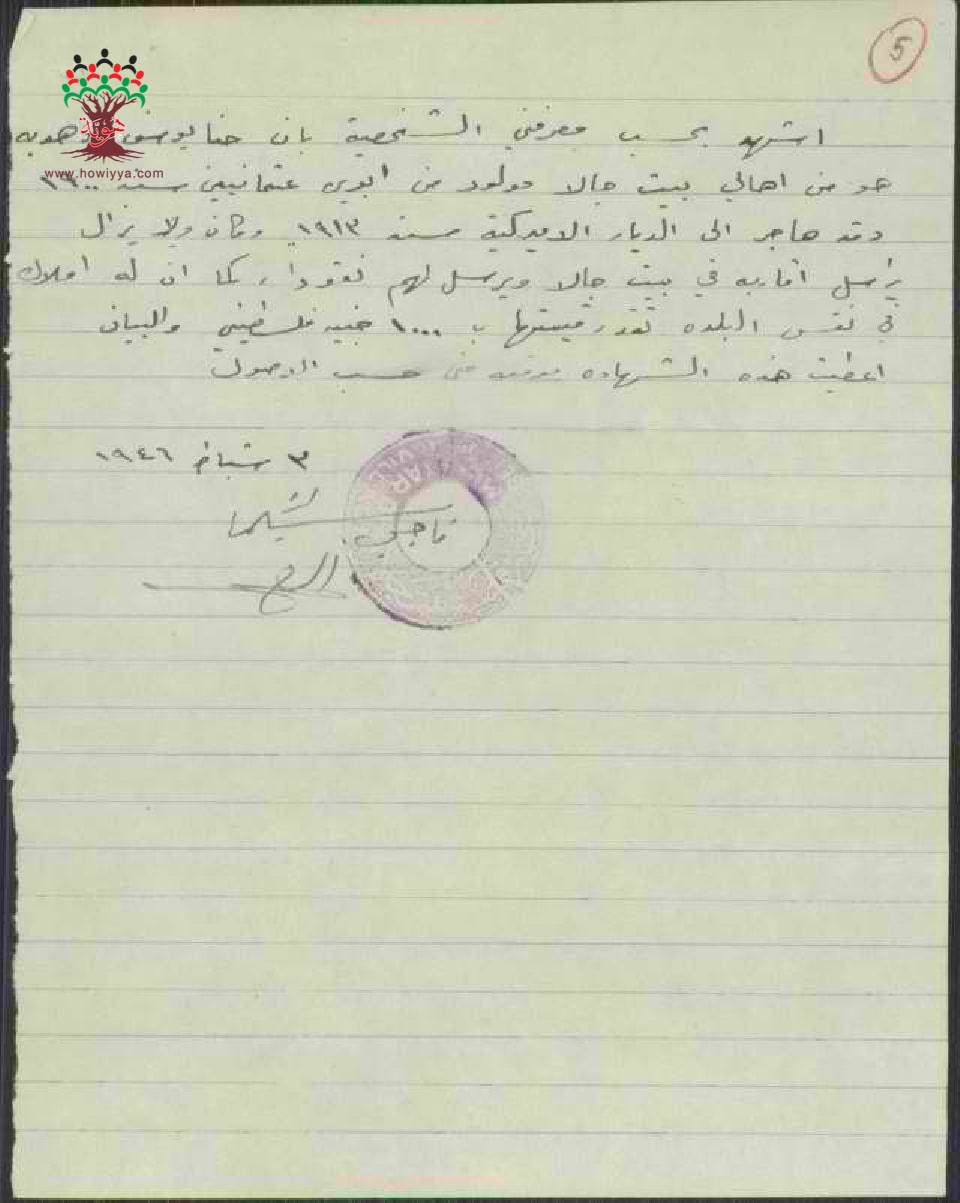 5
هوية
www.howiyya.com
اشهد بحسب معرفتي الشخصية بان حنا يوسف
هو من اهالي بيت جالا مولود من ابوين عثمانيين سنة ١٩٠٠
وقد هاجر الى الديار الاميركية سنة ١٩١٣ وكان ولا يزال
يراسل اقاربه في بيت جالا ويرسل لهم نقودا، كما ان له املاك
في نفس البلده تقدر قيمتها ب ١٠٠٠ جنيه فلسطيني وللبيان
اعطيت هذه الشهاده موقعه مني حسب الاصول
٣ شباط ١٩٤٦
MUKHTAR